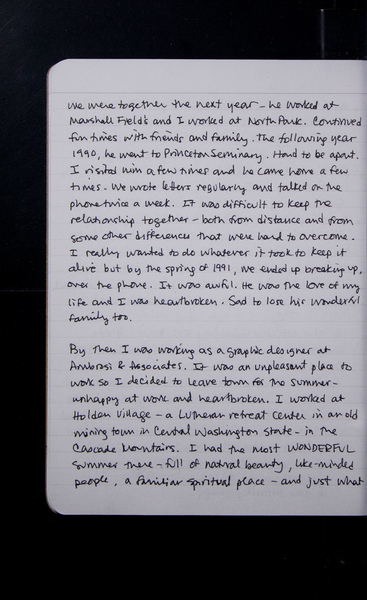 We were together the next year - he worked at
Marshall Field's and I worked at North Park. Continued
fun times with friends and family. The following year
1990, he went to Princeton Seminary. Hard to be apart.
I visited him a few times and he came home a few
times. We wrote letters regularly and talked on the
phone twice a week. It was difficult to keep the
relationship together - both from distance and from
some other differences that were hard to overcome.
I really wanted to do whatever it took to keep it
alive but by the spring of 1991, we ended up breaking up,
over the phone. It was awful. He was the love of my
life and I was heartbroken. Sad to lose his wonderful
family too.

By then I was working as a graphic designer at
Ambrosi & Associates. It was an unpleasant place to
work so I decided to leave town for the summer -
unhappy at work and heartbroken. I worked at
Holden Village - a Lutheran retreat center in an old
mining town in Central Washington State - in the
Cascade Mountains. I had the most WONDERFUL
summer there - full of natural beauty, like-minded
people, a familiar spiritual place - and just what